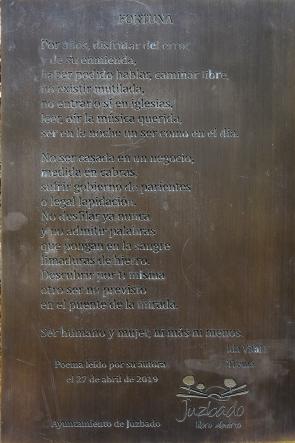 FORTUNA
Por años, disfrutar del error
y de su enmienda,
haber podido hablar, caminar libre,
no existir mutilada,
no entrar o sí en iglesias,
leer, oír la música querida,
ser en la noche un ser como en el día.
No ser casada en un negocio,
medida en cabras,
sufrir gobierno de parientes
o legal lapidación.
No desfilar ya nunca
y no admitir palabras
que pongan en la sangre
limaduras de hierro.
Descubrir por ti misma
otro ser no previsto
en el puente de la mirada.
Ser humano y mujer, ni más ni menos.
Ida Vitale
Poema leído por su autora
el 27 de abril de 2019
Juzbado
libro abierto
Ayuntamiento de Juzbado